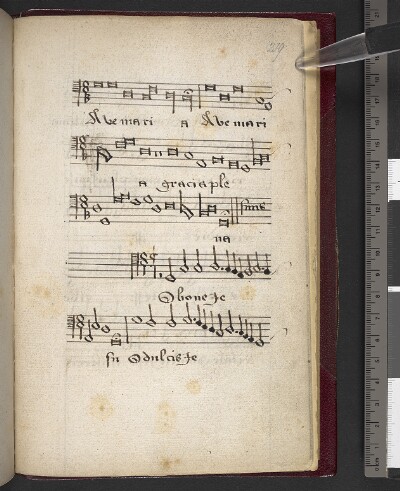 Ave mari a Ave mari
a gracia ple
finis
na
O bone Je
su O dulcis Je